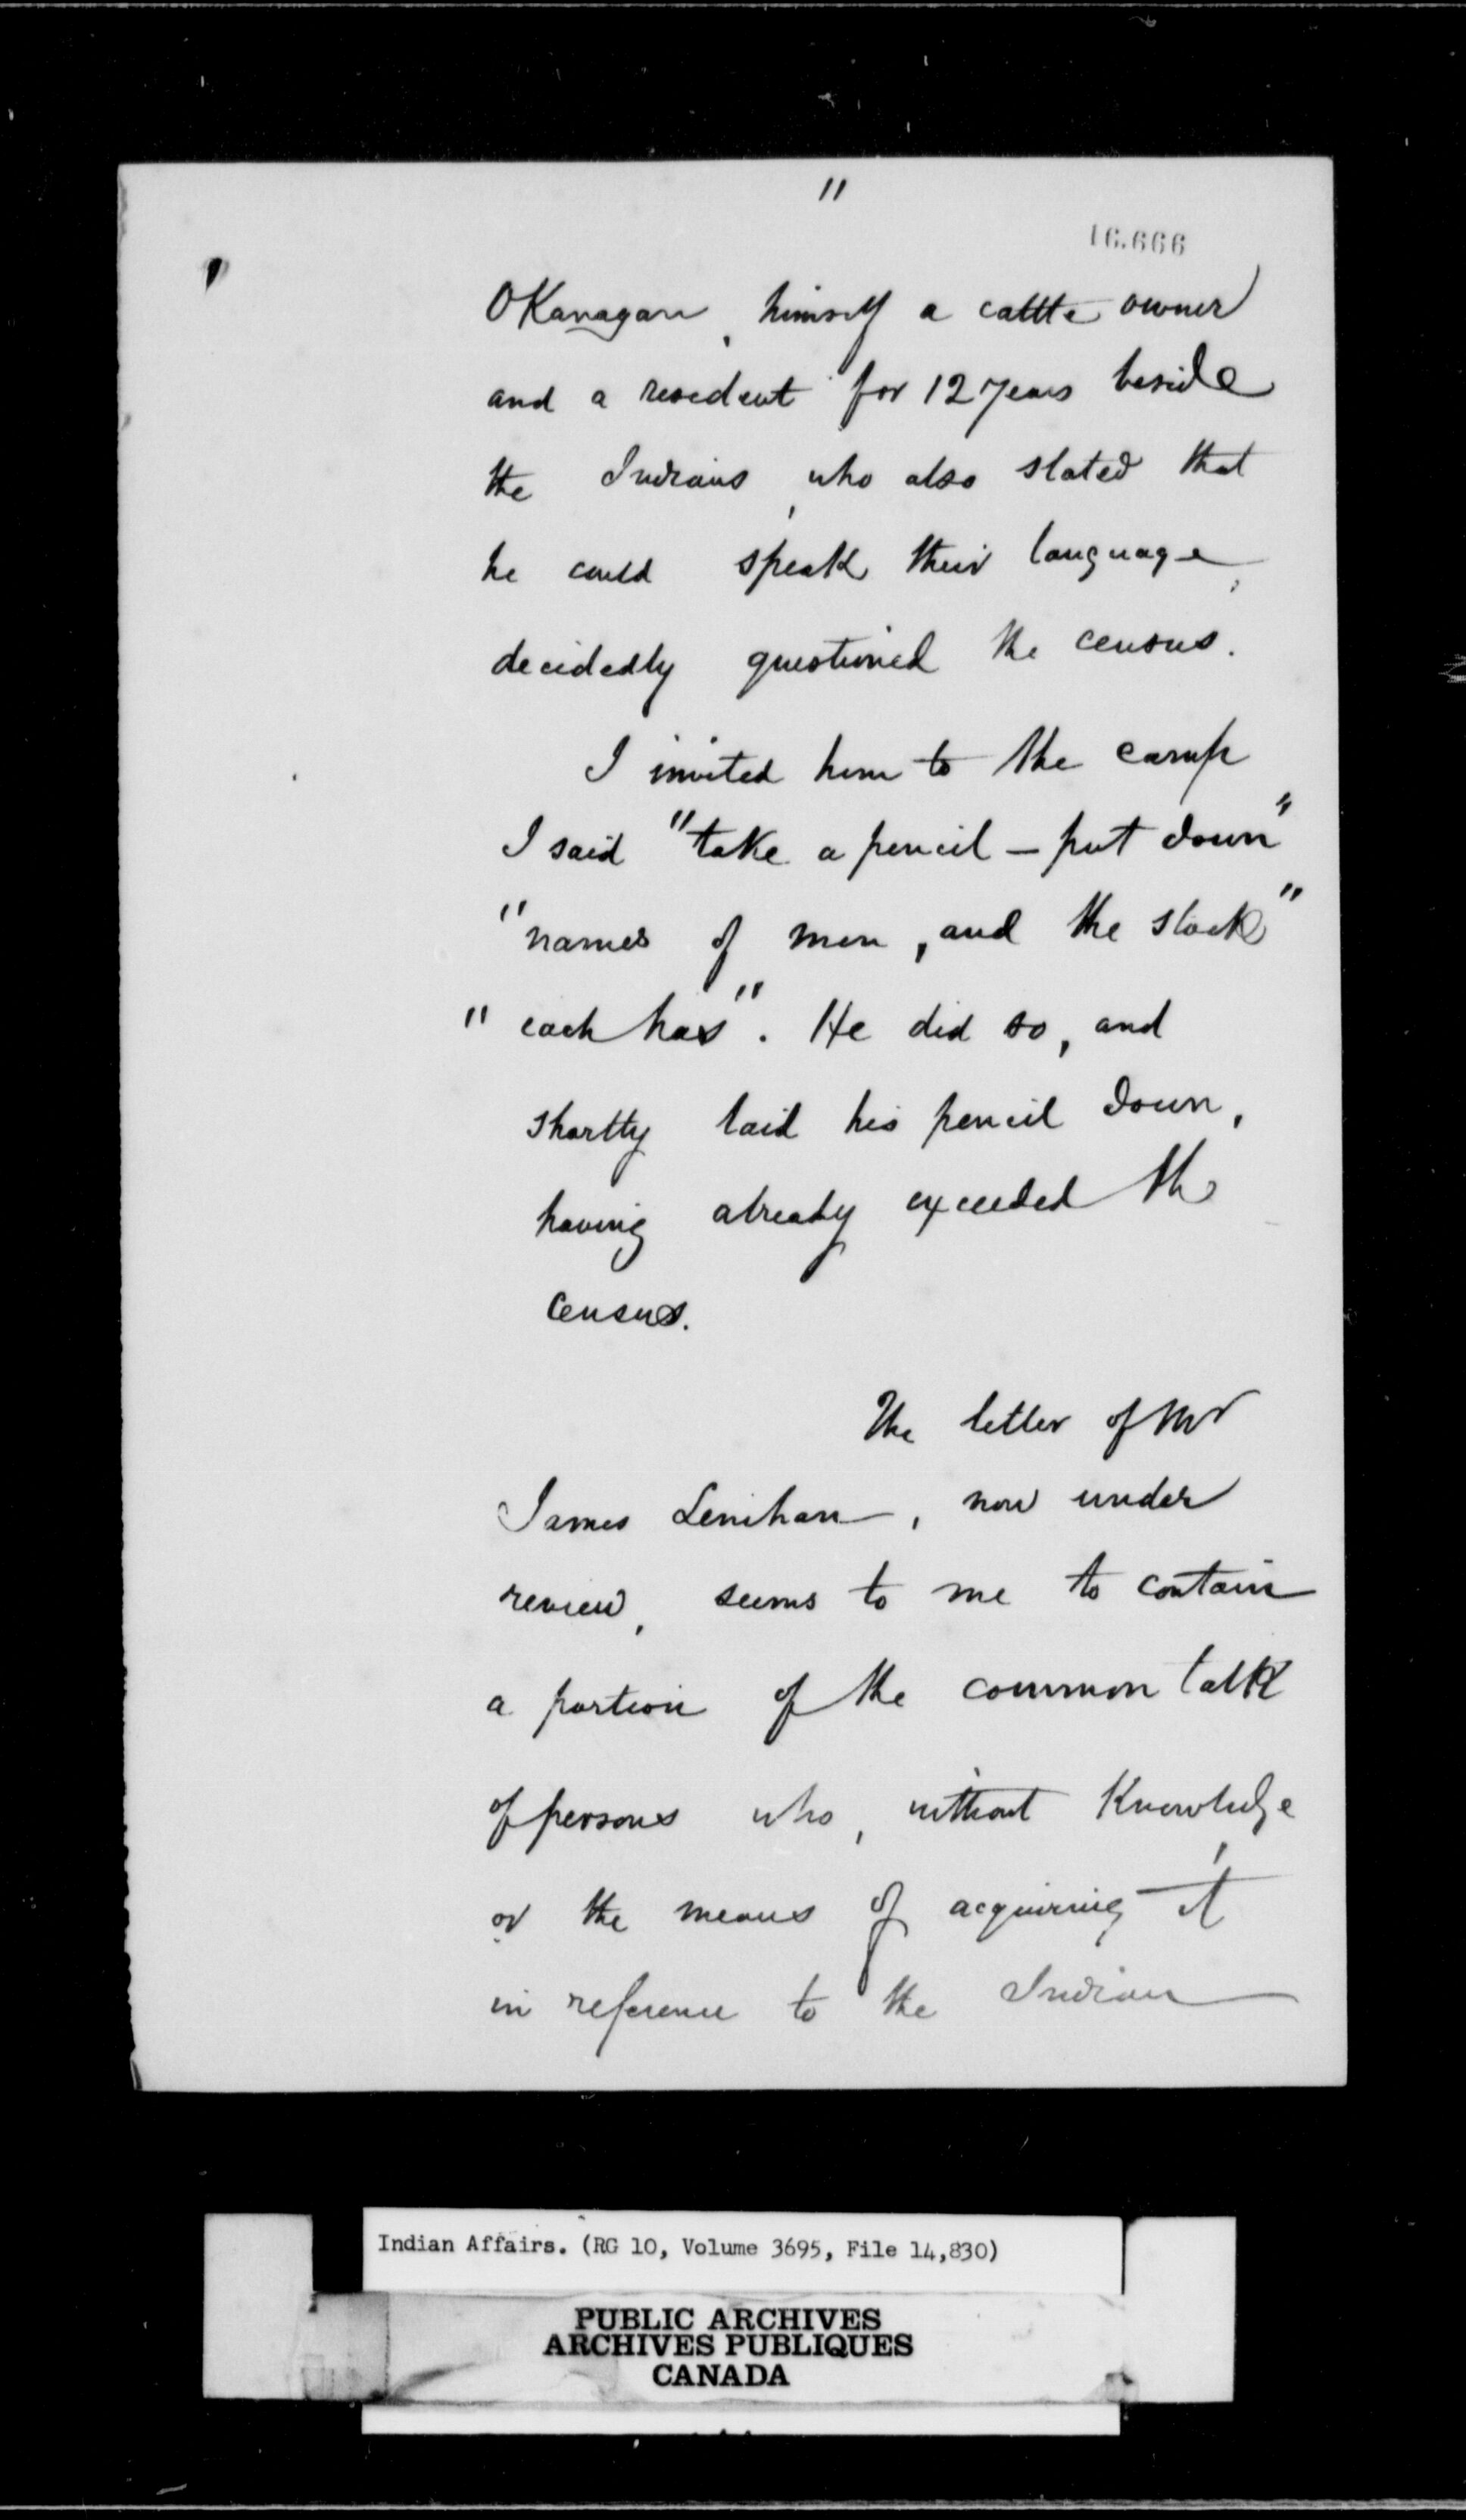 11
16.666
OKanagan, himself a cattle owner
and a resident for 12 years beside
the Indians, who also stated that
he could speak their language,
decidedly questioned the census.
I invited him to the camp
I said "take a pencil - put down"
"names of men, and the stock"
"each has". He did so, and
shortly laid his pencil down,
having already exceeded the
Census.
The letter of Mr
James Lenihan, now under
review, seems to me to contain
a portion of the common talk
of persons who, without Knowledge,
or the means of acquiring it
in reference to the Indian
Indian Affairs. (RG 10, Volume 3695, File 14,830)
PUBLIC ARCHIVES
ARCHIVES PUBLIQUES
CANADA